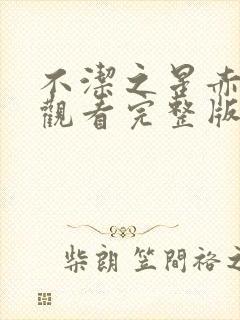 不潔之星赤
觀看完整版
柴朗 笠間裕之